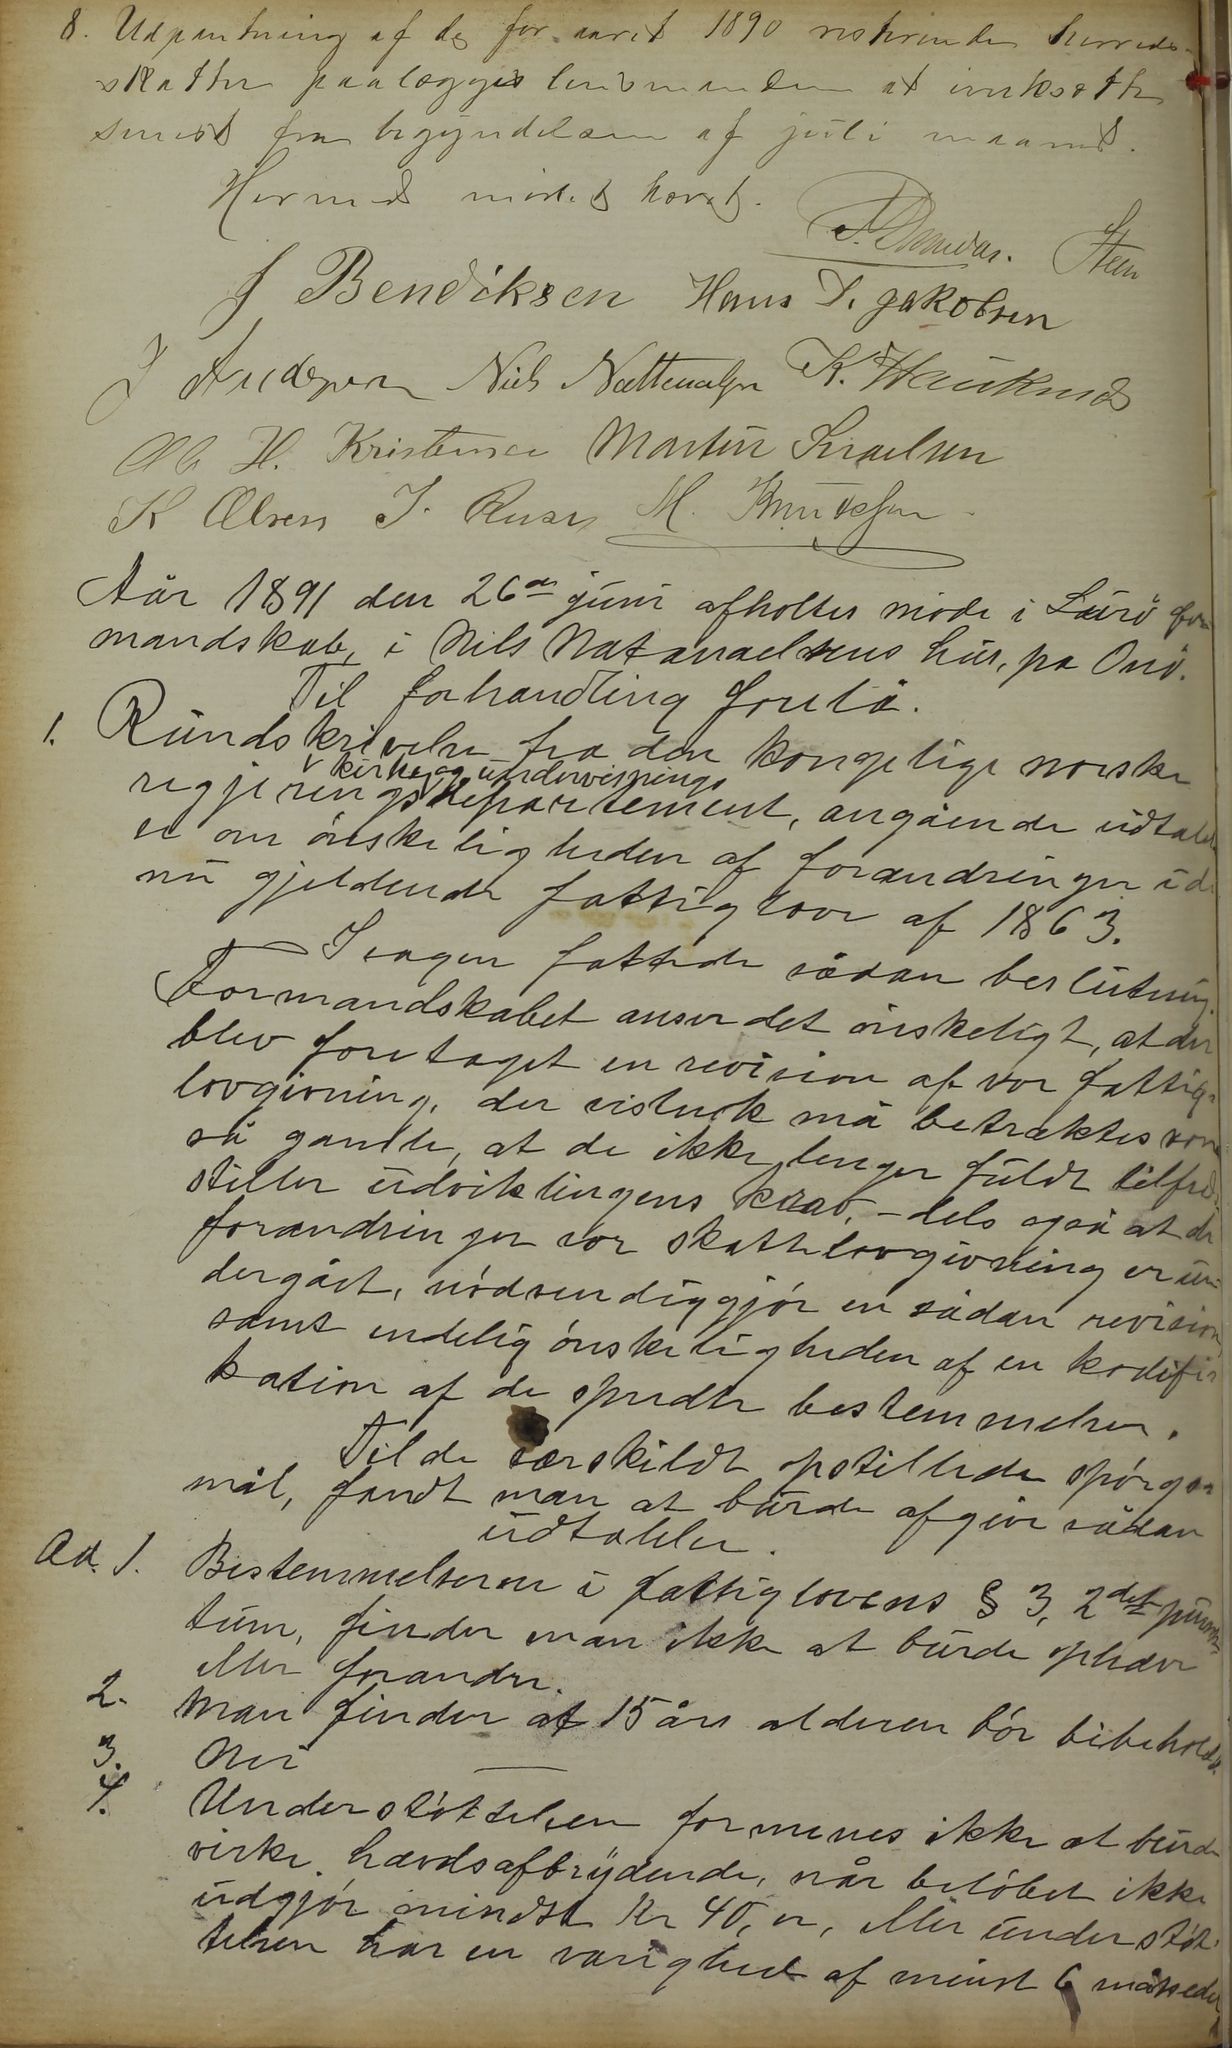 8. Udpantning af de for aaret 1890 resterende herreds-
skatter paalægges lensmanden at iverksætte
senest fra begyndelsen af juli maaned.
Hermed mödet hævet.
Steen
J Bendiksen Hans P. Jakobsen
J Andersen Nils Nattenalsen K. Hauknæs
Ole H. Kristensen Martin Israelsen
K Olsen J. Olusen M. Knudsen
Aår 1891 den 26de juni afholtes möde i Lurö for
mandskab, i Nils Natanaelsens hus, på Onö.
Til forhandling forelå.
1. Rundskrivelse fra den kongelige norske
kirke og undervisnings
regjeringsdepartement, angående udtalel
se om önskeligheden af forandringer i de
nu gjeldende fattiglove af 1863.
I sagen fattede sådan beslutning.
Formandskabet anser det önskeligt, at der
blev foretaget en revision af vor fattig-
lovgivning, der vistnok må betraktes som
så gamle, at de ikke lenger fuldt tilfreds
stiller udviklingens krav, - dels også at de
forandringer vor skattelovgivning er un-
dergået, nödvendiggjör en sådan revision
samt endelig önskeligheden af en kodifi-
kation af de spredte bestemmelser.
Til de særskildt opstillede spörgs-
mål, fandt man at burde afgive sådan
udtalelse.
Ad. 1. Bestemmelserne i fattiglovens § 3, 2det punk-
tum, finder man ikke at burde ophæve
eller forandre.
2. Man finder at 15 års alderen bör bibeholdes.
3. Nei
4. Understöttelsen formenes ikke at burde
virke hævdsafbrydende, når belöbet ikke
udgjör mindst Kr 40, er, eller understöt-
telsen har en varighed af minst 6 måneder